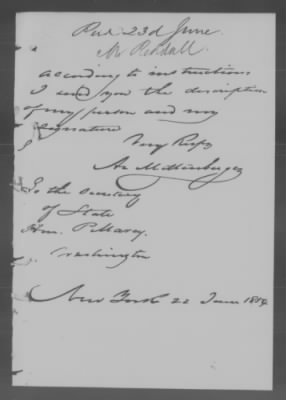 Recd 23d June
Mr Randall.
according to instructions
I send you the discription
of my person and my
signature
Very Respy
Mittenberger
To the Secretary
of State
Hon. P Marcy.
Washington
New York 22 June 1854